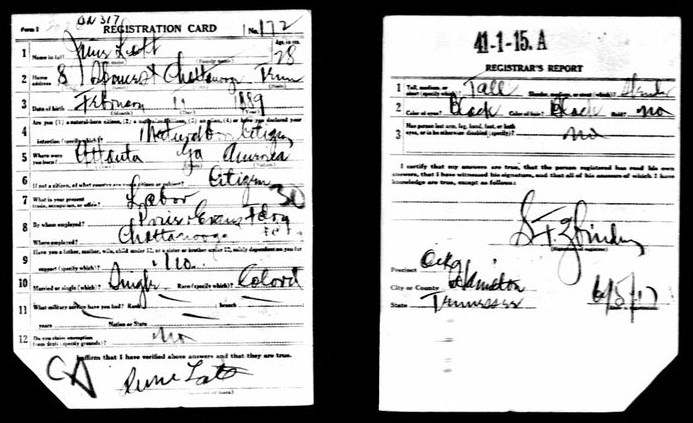 Form 1
REGISTRATION CARD No. 172
1 Name in full Age, in yrs. 28
2 Home address Chattanooga Tenn
3 Date of birth February 11 1889
4 Are you (1) a natural-born citizen, (2) a naturalized citizen, (3) an alien, (4) or have you declared your intention (specify which)? Natural born Citizen
5 Where were you born? Atlanta Ga America
6 If not a citizen, of what country are you a citizen or subject? Citizen
7 What is your present trade, occupation, or office? Labor 30
8 By whom employed?
Where employed? Chattanooga
9 Have you a father, mother, wife, child under 12, or a sister or brother under 12, solely dependent on you for support (specify which)? no.
10 Married or single (which)? Single Race (specify which)? Colord
11 What military service have you had? Rank branch
years Nation or State
12 Do you claim exemption from draft (specify grounds)? No
I affirm that I have verified above answers and that they are true.
41-1-15. A
REGISTRAR'S REPORT
1 Tall, medium, or short (specify which)? Tall Slender, medium, or stout (which)? Slender
2 Color of eyes? Black Color of hair? Black Bald? No
3 Has person lost arm, leg, hand, foot, or both eyes, or is he otherwise disabled (specify)? no
I certify that my answers are true, that the person registered has read his own answers, that I have witnessed his signature, and that all of his answers of which I have knowledge are true, except as follows:
Precinct
City or County Hamilton
State Tennessee
6/5/17